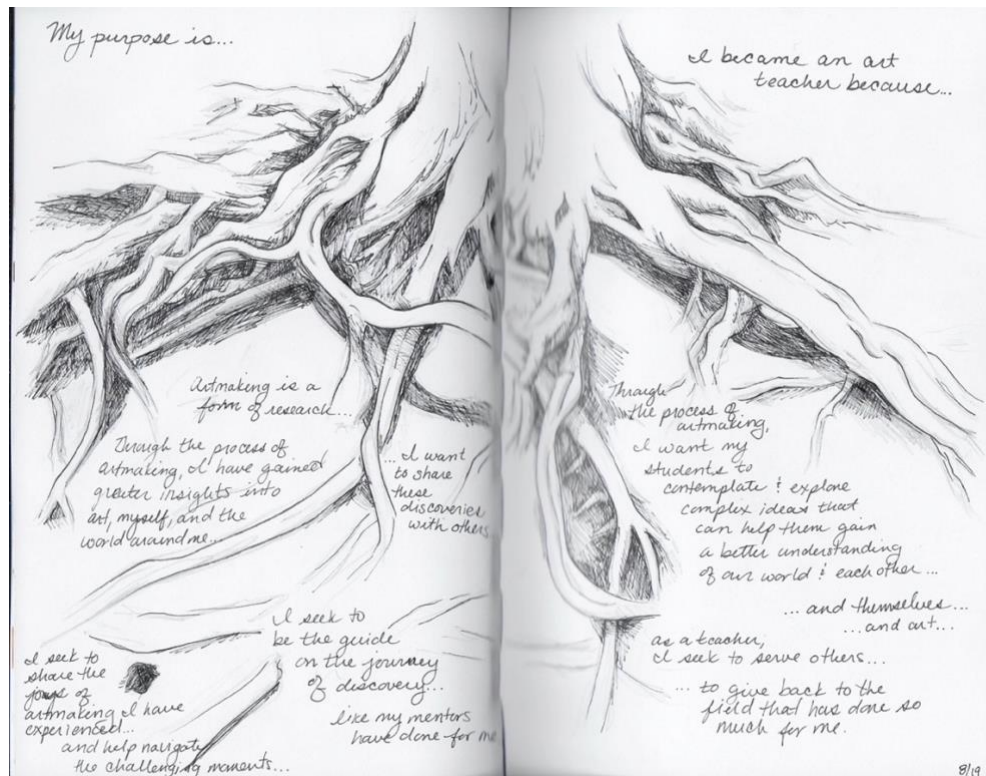 My purpose is...
Artmaking is a
form of research...
Through the process of
artmaking, I have gained
greater insights into
art, myself, and the
world around me...
...I want
to share
these
discoveries
with others
I seek to
be the guide
on the journey
of discovery...
like my mentors
have done for me
I seek to
share the
joys of
artmaking I have
experienced...
and help navigate
the challenging moments...
I became an art
teacher because...
Through
the process of
artmaking,
I want my
students to
contemplate & explore
complex ideas that
can help them gain
a better understanding
of our world & each other...
...and themselves...
...and art...
as a teacher,
I seek to serve others...
... to give back to the
field that has done so
much for me.
8/19